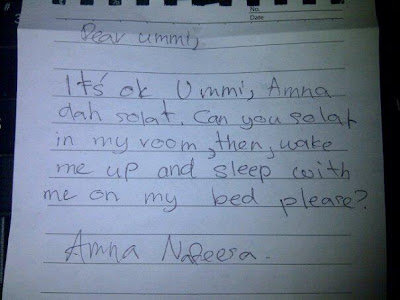 No.
Date
Dear ummi,
It's ok Ummi, Amna
dah solat. Can you solat
in my room, then, wake
me up and sleep with
me on my bed please?
Amna Nafeesa.